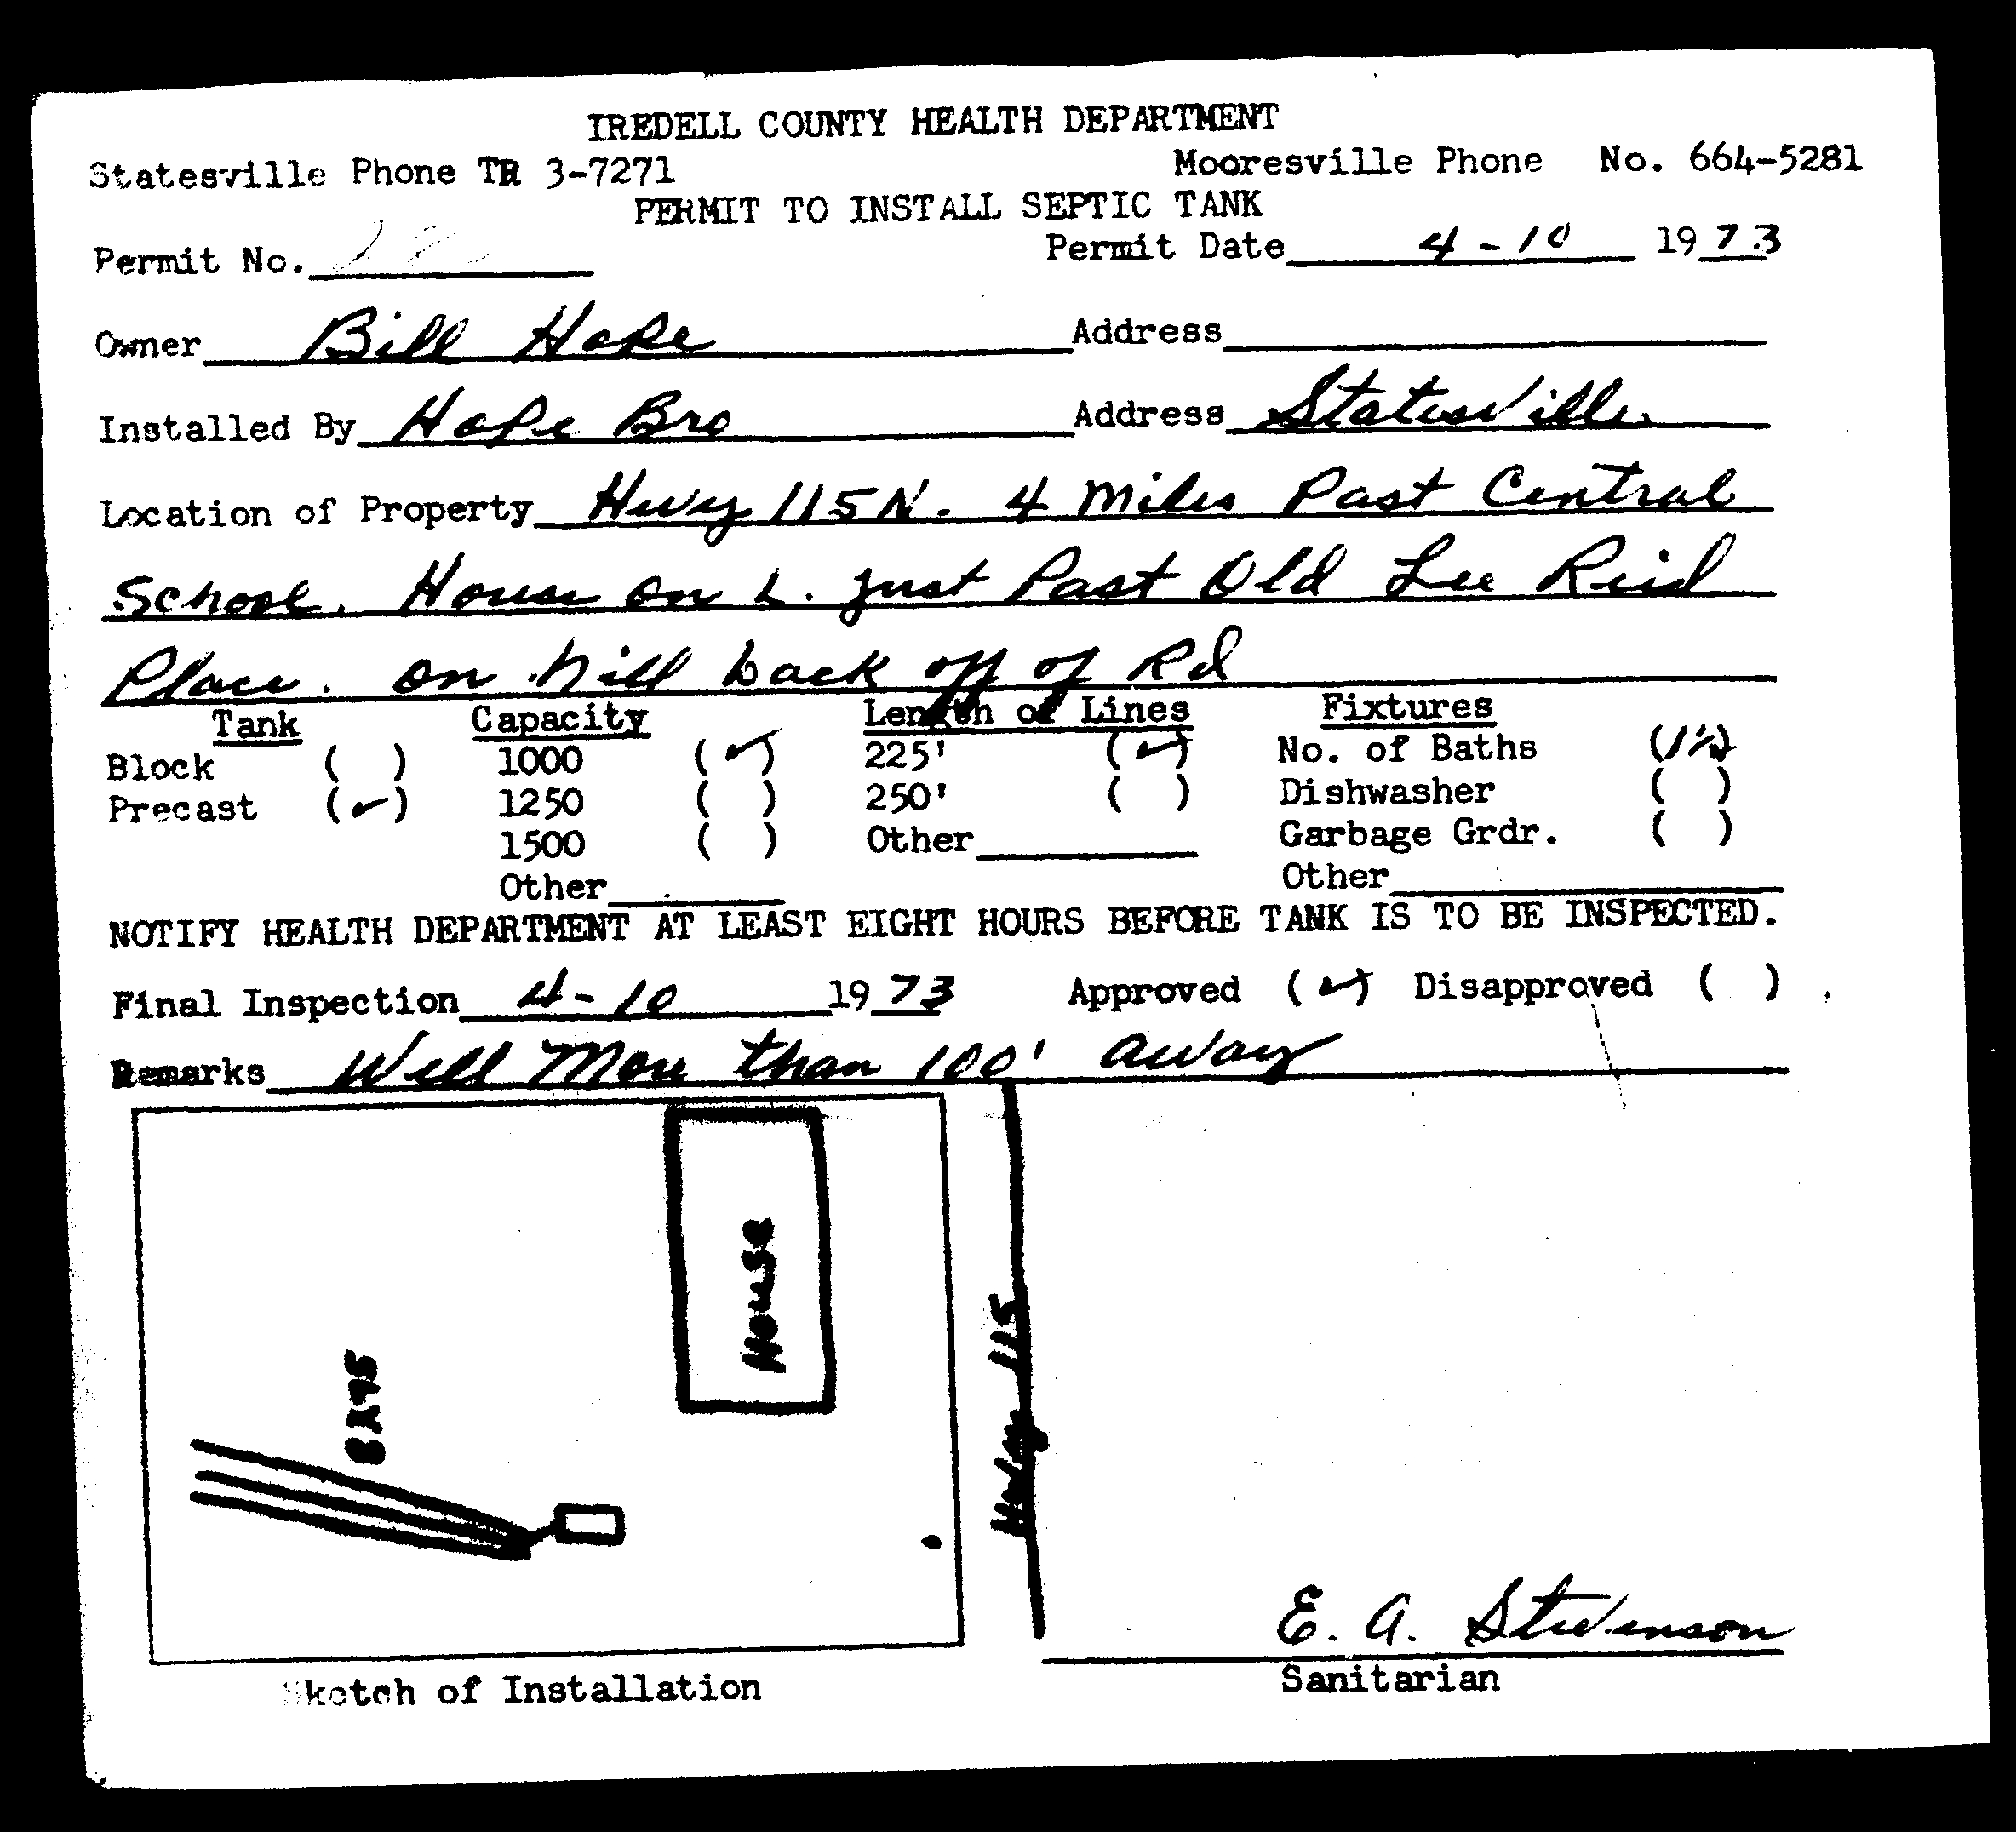 IREDELL COUNTY HEALTH DEPARTMENT
Statesville Phone TR 3-7271 Mooresville Phone No. 664-5281
PERMIT TO INSTALL SEPTIC TANK
Permit No. Permit Date 4-10 1973
Owner Bill Hope Address
Installed By Hope Bro Address Statesville
Location of Property Hwy 115 N. 4 miles Past Central
School. House on L. just Past Old Lee Reid
Place. on hill back off of Rd
Tank Capacity Length of Lines Fixtures
Block ( ) 1000 (✓) 225' (✓) No. of Baths (1½)
Precast (✓) 1250 ( ) 250' ( ) Dishwasher ( )
1500 ( ) Other Garbage Grdr. ( )
Other Other
NOTIFY HEALTH DEPARTMENT AT LEAST EIGHT HOURS BEFORE TANK IS TO BE INSPECTED.
Final Inspection 4-10 1973 Approved (✓) Disapproved ( )
Remarks Well More than 100' away
House
Hwy 115
E. A. Stevenson
Sketch of Installation Sanitarian